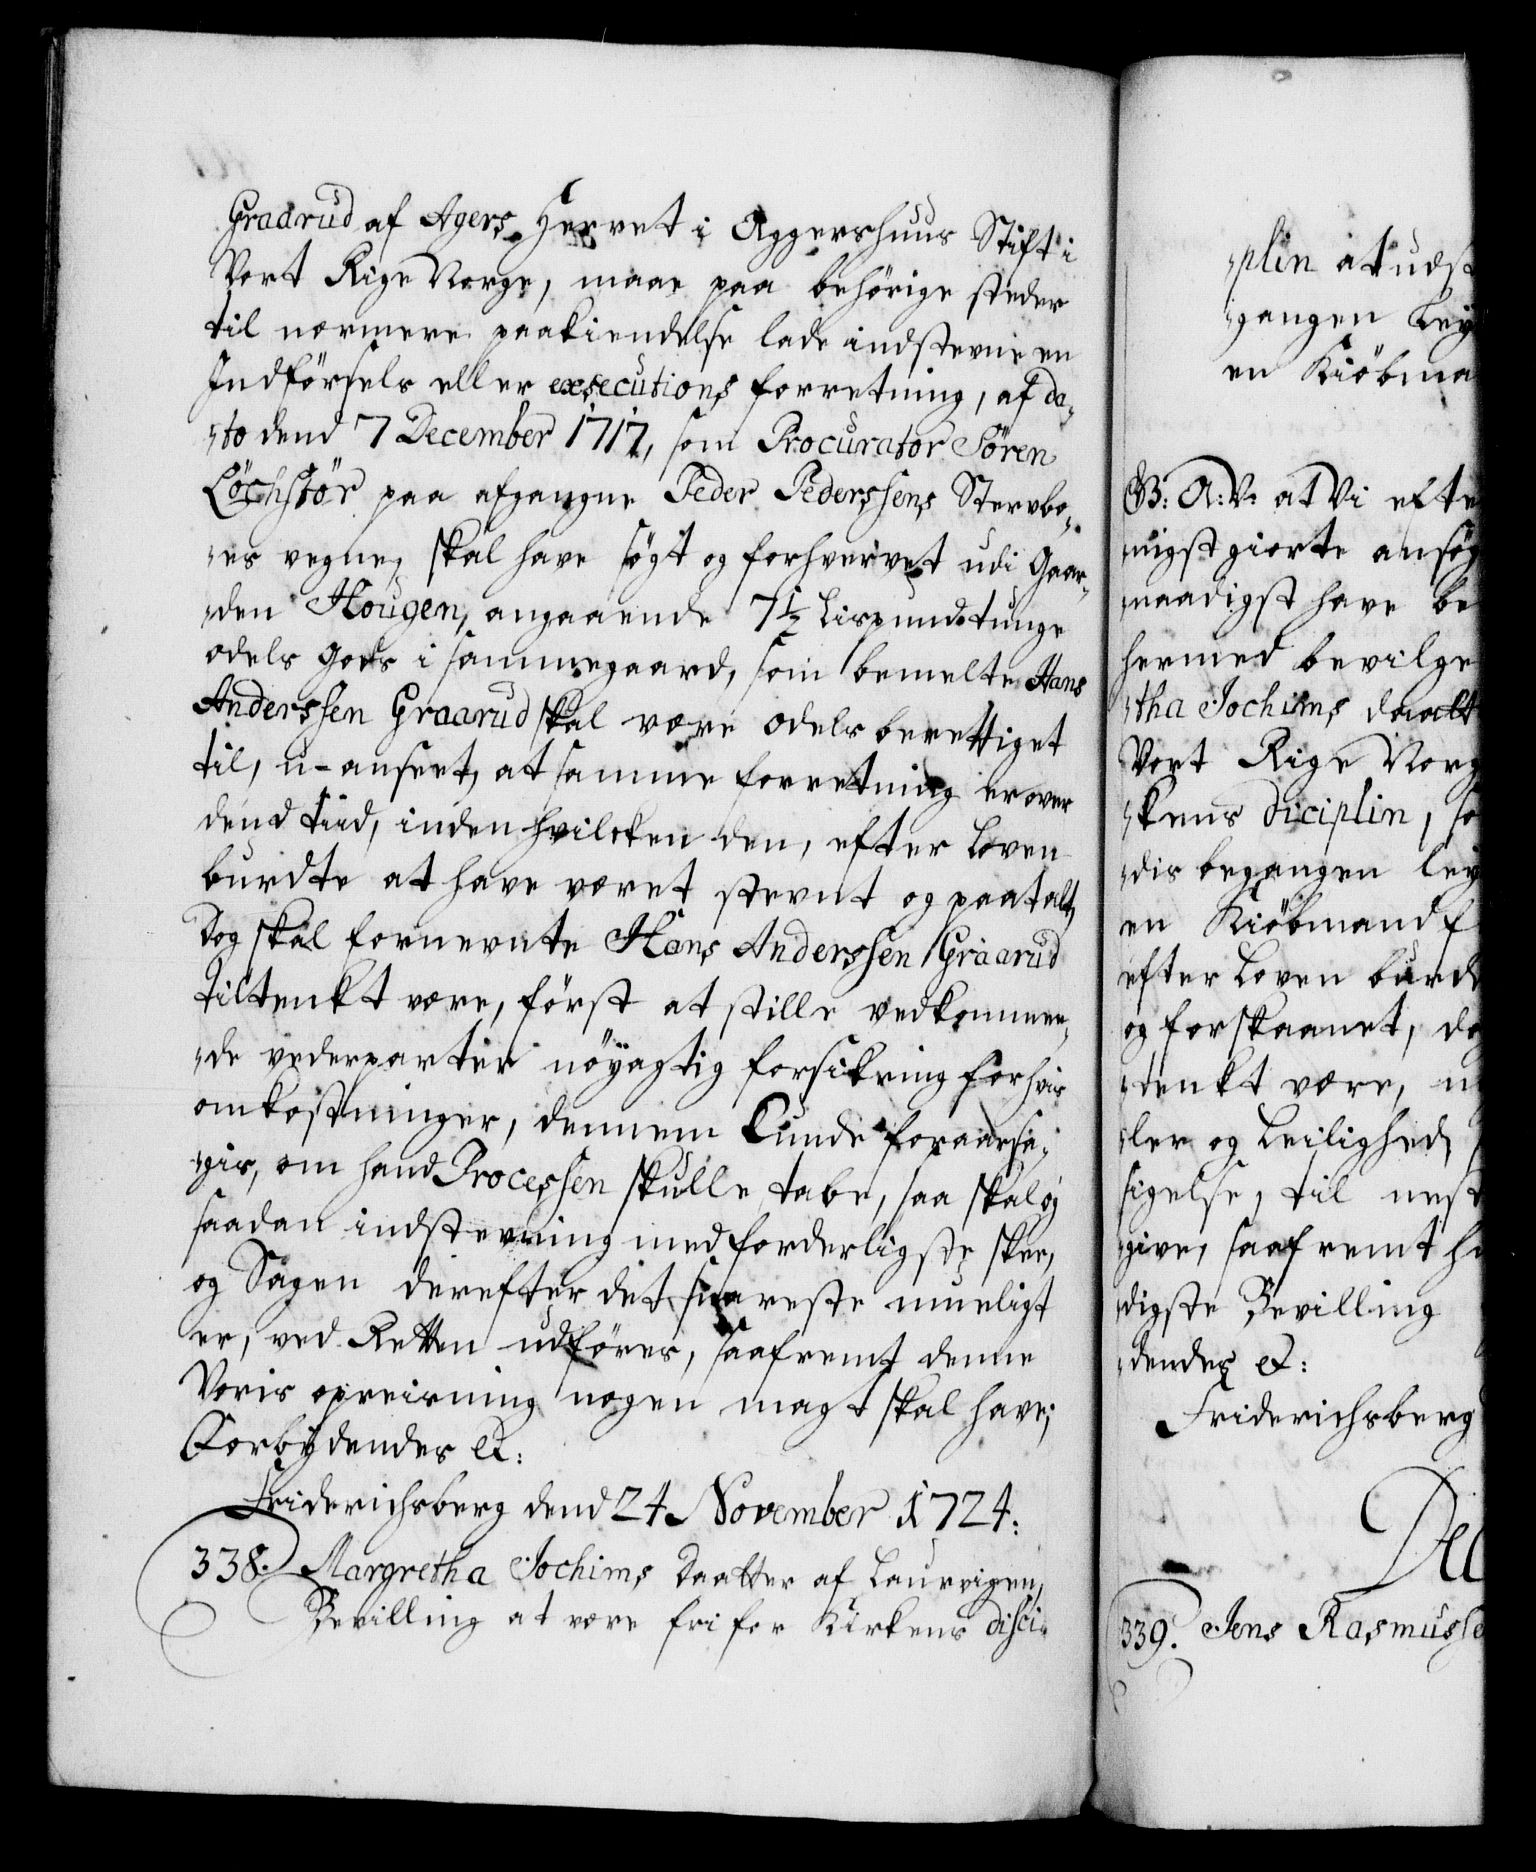 Graarud af Agers Herret i Aggershuus Stift i
Vort Rige Norge, maae paa behörige steder
til nærmere paakiendelse lade indstevne en
Indförsels eller exsecutions forretning, af da„
„to dend 7 December 1717, som Procurator Sören
Löchstör paa afgangne Peder Pederssens Stervbo„
„es vegne, skal have sögt og forhvervet udi Gaar„
„den Hougen, angaaende 7½ Lispundstunge
odels gods i sammegaard, som bemelte Hans
Anderssen Graarud skal være odels berettiget
til, u-anseet, at samme forretning er over
dend tiid, inden hvilcken den, efter Loven
burdte at have været stevnt og paatalt,
Dog skal fornevnte Hans Anderssen Graarud
tiltenkt være, först at stille vedkommen„
„de vederparter nöyagtig forsikring for hvis
omkostninger, dennem kunde foraarsa„
„gis, om hand Processen skulle tabe, saa skal og
saadan indstevning med forderligste skee,
og Sagen derefter det snareste mueligt
er, ved Retten udföres, saafremt denne
Voris opreisning nogen magt skal have;
Forbydendes etc:
Friderichsberg dend 24 November 1724:
338. Margretha Jochims Daatter af Laurvigen,
Bevilling at være fri for Kirkens disci„
„plin at udst
„gangen Ley
en Kiöbma
G: A: V: at Vi efte
„nigst giorte ansög
„naadigst have be
hermed bevilge
„tha Jochims daatt
Vort Rige Norg
„kens diciplin, so
„dis begangen ley
en Kiöbmand f
efter Loven burd
og forskaanet, do
„tenkt være, u
„ler og Leilighed,
sigelse, til nest
„give, saafremt h
„digste Bevilling
„dendes etc:
Friderichsberg
De
339. Jens Rasmusse